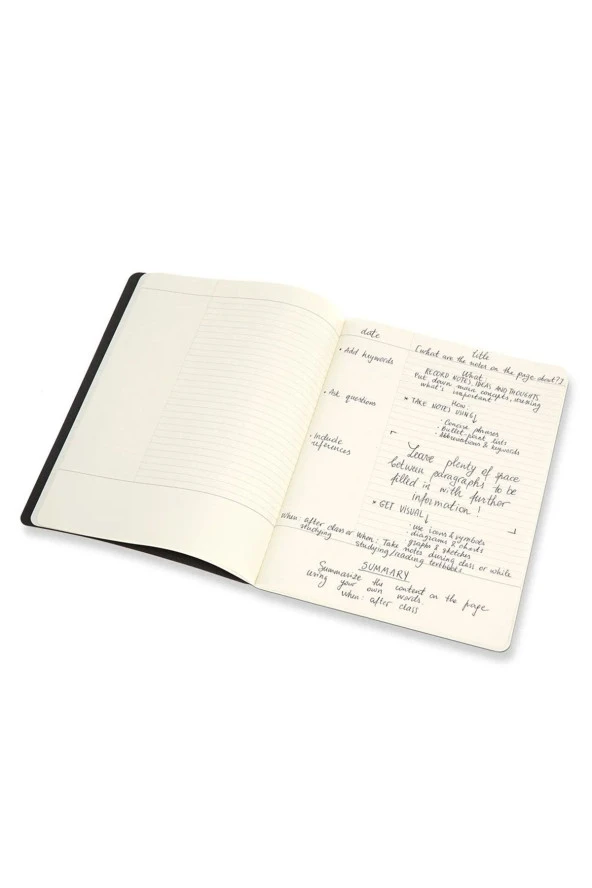 date
Title
[what are the notes on the page about?]
• Add keywords
• Ask questions
• Include
references
When: after class or
studying
What:
RECORD NOTES, IDEAS AND THOUGHTS
Put down main concepts, writing
what's important
How:
* TAKE NOTES USING
· Concise phrases
· Bullet-point lists
· Abbreviations & keywords
Leave plenty of space
between paragraphs to be
filled in with further
information!
* GET VISUAL
· use icons & symbols
· diagrams & charts
· graphs & sketches
When: Take notes during class or while
studying/reading textbooks
SUMMARY
Summarize the content on the page
using your own words.
When: after class